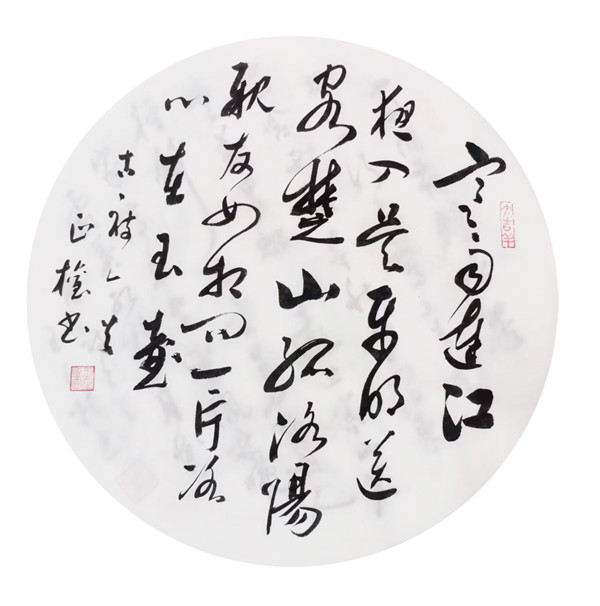 寒雨連江
夜入吴平明送
客楚山孤洛陽
親友如相问一片冰
心在玉壶
古诗一首
正 书